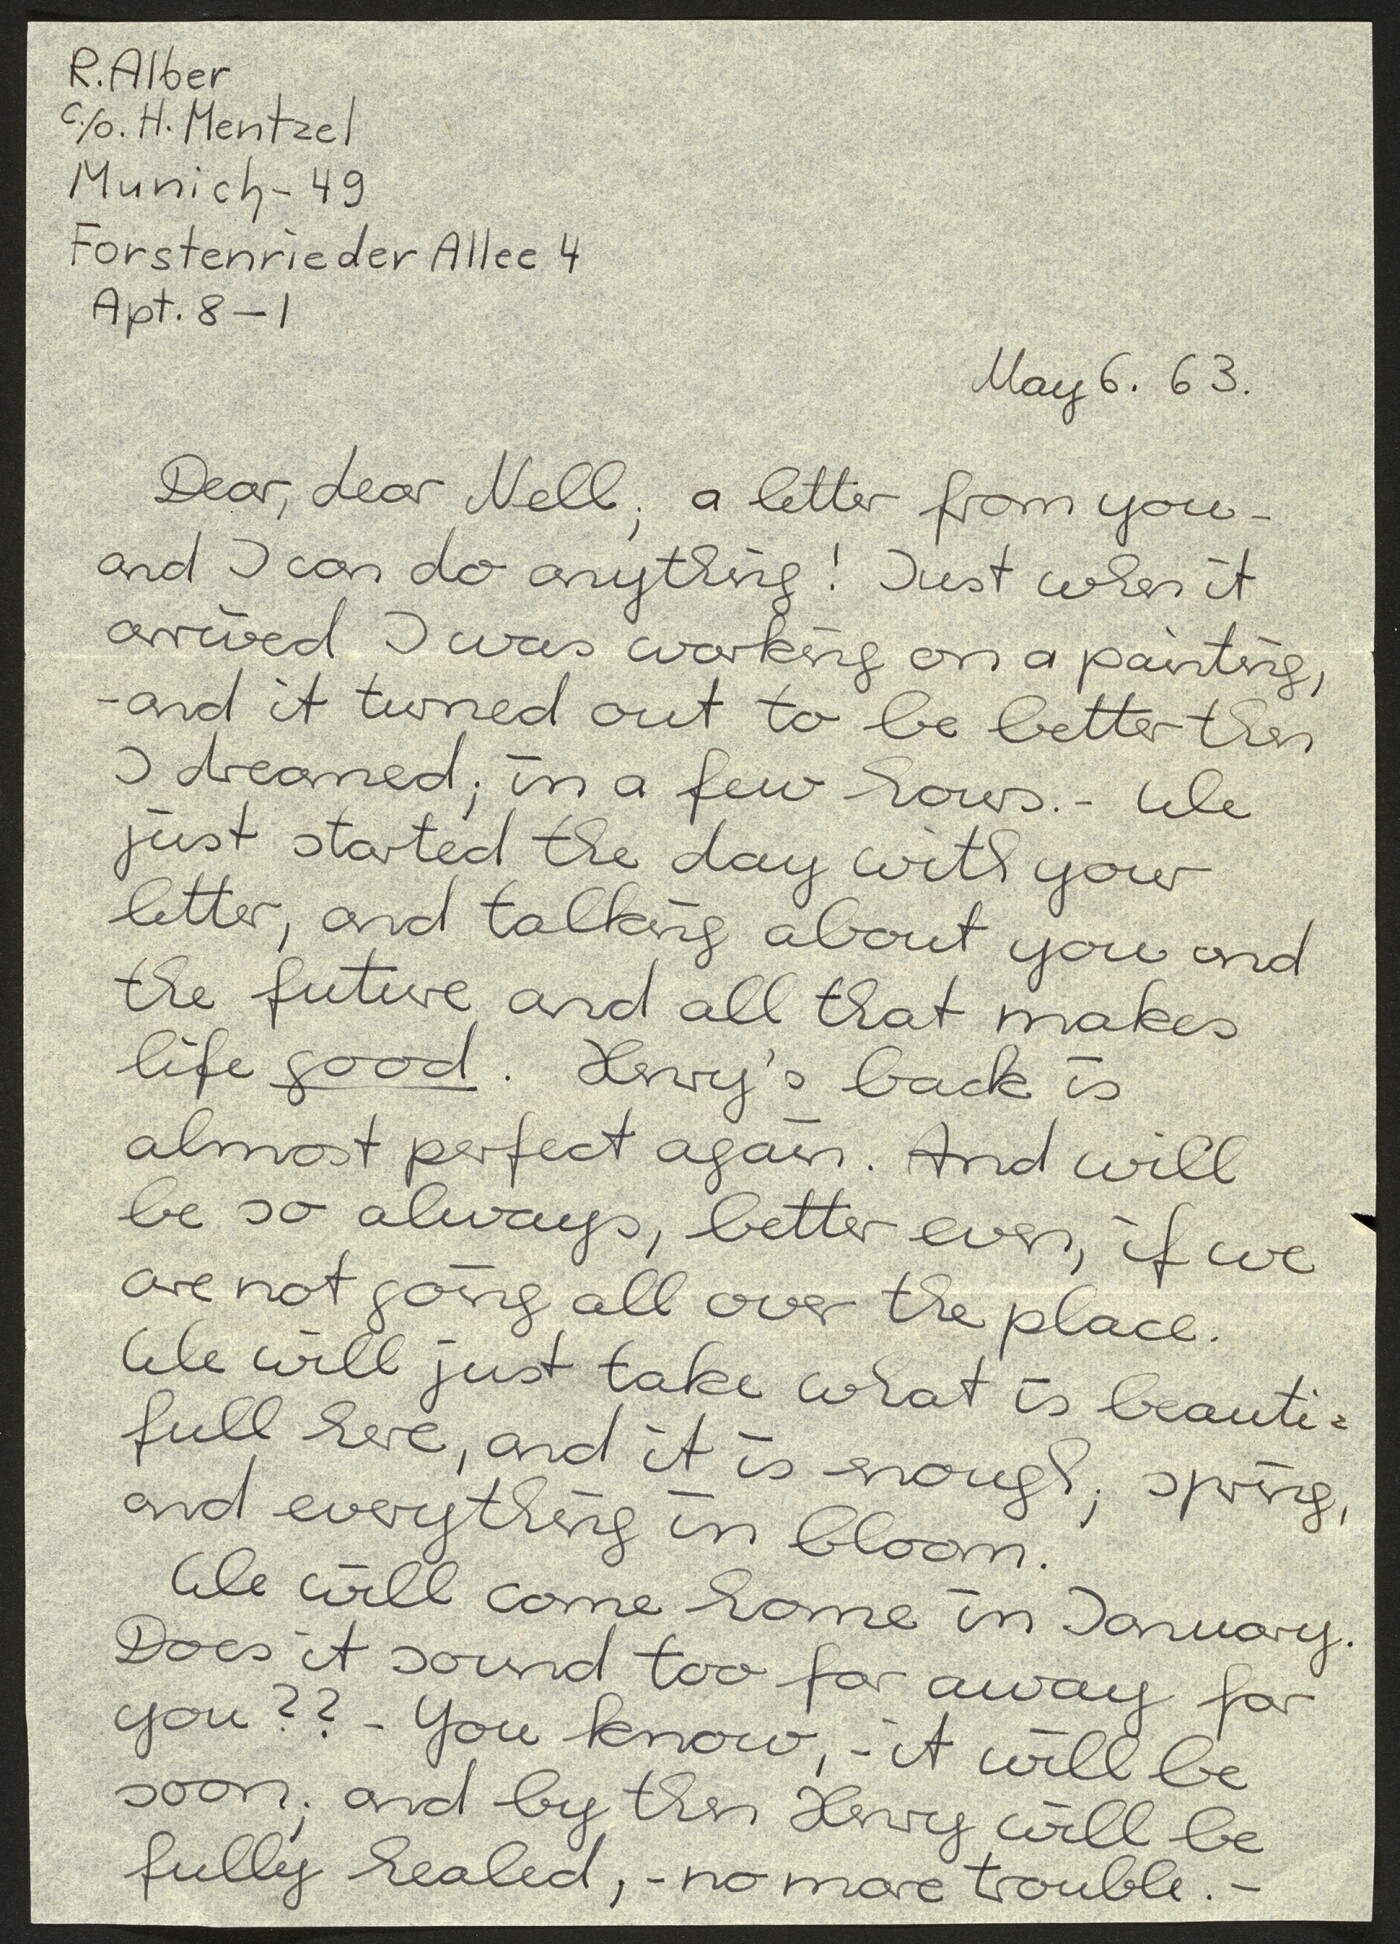 R. Alber
c/o. H. Mentzel
Munich - 49
Forstenrieder Allee 4
Apt. 8 - 1
May 6. 63.
Dear, dear Nell; a letter from you -
and I can do anything! Just when it
arrived I was working on a painting,
- and it turned out to be better then
I dreamed; in a few hours. - We
just started the day with your
letter, and talking about you and
the future and all that makes
life good. Henry's back is
almost perfect again. And will
be so always, better even, if we
are not going all over the place.
We will just take what is beauti=
full here, and it is enough; spring,
and everything in bloom.
We will come home in January.
Does it sound too far away for
you?? - You know, - it will be
soon; and by then Henry will be
fully healed, - no more trouble. -